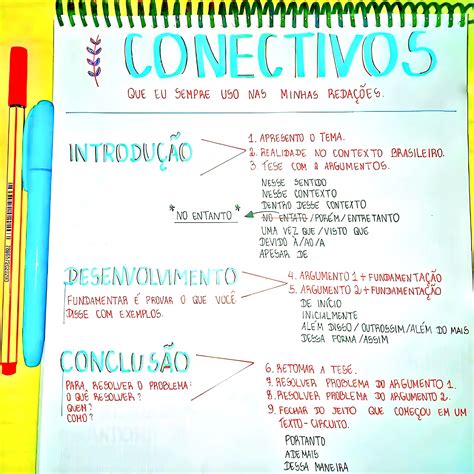 CONECTIVOS
QUE EU SEMPRE USO NAS MINHAS REDAÇÕES.
INTRODUÇÃO
1. APRESENTO O TEMA.
2. REALIDADE NO CONTEXTO BRASILEIRO.
3 TESE COM 2 ARGUMENTOS.
NESSE SENTIDO
NESSE CONTEXTO
DENTRO DESSE CONTEXTO
*NO ENTANTO*
NO ENTATO/PORÉM/ENTRETANTO
UMA VEZ QUE/VISTO QUE
DEVIDO À/AO/A
APESAR DE
DESENVOLVIMENTO
FUNDAMENTAR É PROVAR O QUE VOCÊ
DISSE COM EXEMPLOS.
4. ARGUMENTO 1 + FUNDAMENTAÇÃO
5. ARGUMENTO 2 + FUNDAMENTAÇÃO
DE INÍCIO
INICIALMENTE
ALÉM DISSO/OUTROSSIM/ALÉM DO MAIS
DESSA FORMA/ASSIM
CONCLUSÃO
PARA RESOLVER O PROBLEMA:
O QUÊ RESOLVER?
QUEM?
COMO?
6. RETOMAR A TESE.
7. RESOLVER PROBLEMA DO ARGUMENTO 1.
8. RESOLVER PROBLEMA DO ARGUMENTO 2.
9. FECHAR DO JEITO QUE COMEÇOU EM UM
TEXTO-CIRCUITO.
PORTANTO
ADEMAIS
DESSA MANEIRA